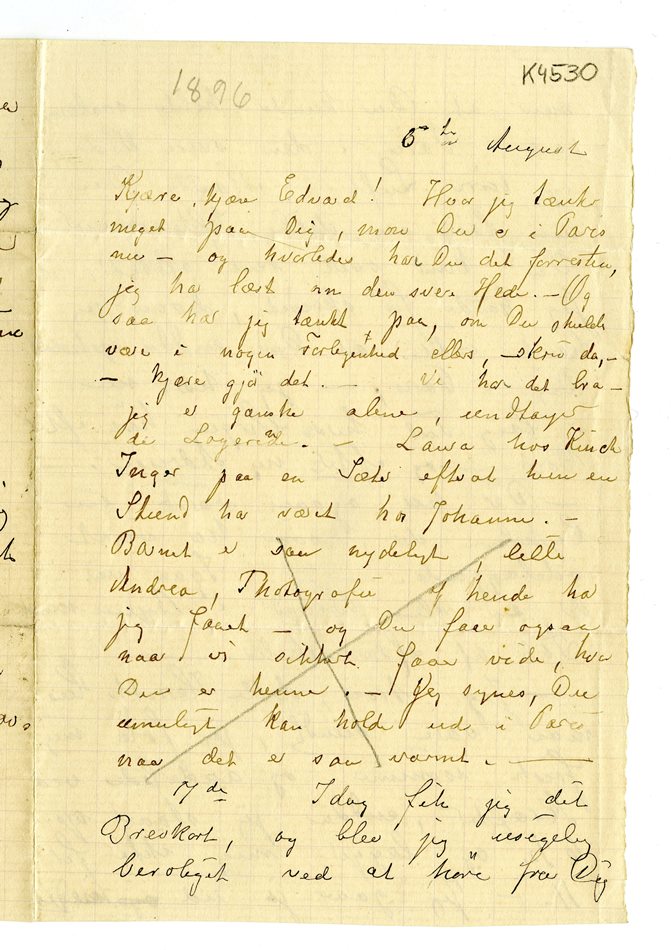 K4530
1896
6te August
Kjære, kjære Edvard! Hvor jeg tænker
meget paa Dig, mon Du er i Paris
nu – og hvorledes har Du det forresten,
jeg har læst om den svere Hede. – Og
saa har jeg tænkt paa, om Du skulde
være i nogen Forlegenhed ellers, – skriv da, –
– kjære gjör det. – . Vi har det bra –
jeg er ganske alene, undtagen
de Logerende. – Laura hos Kinck
Inger paa en Sæter efterat hun en
Stund har været hos Johanne. –
Barnet er saa nydeligt, lille
Andrea, Photografie af hende har
jeg faaet – og Du faar ogsaa
naar vi sikkert faar vide, hvor
Du er henne. – Jeg synes, Du
umuligt kan holde ud i Paris
naar det er saa varmt. –
7de Idag fik jeg dit
Brevkort, og blev jeg usigelig
beroliget ved at höre fra Dig